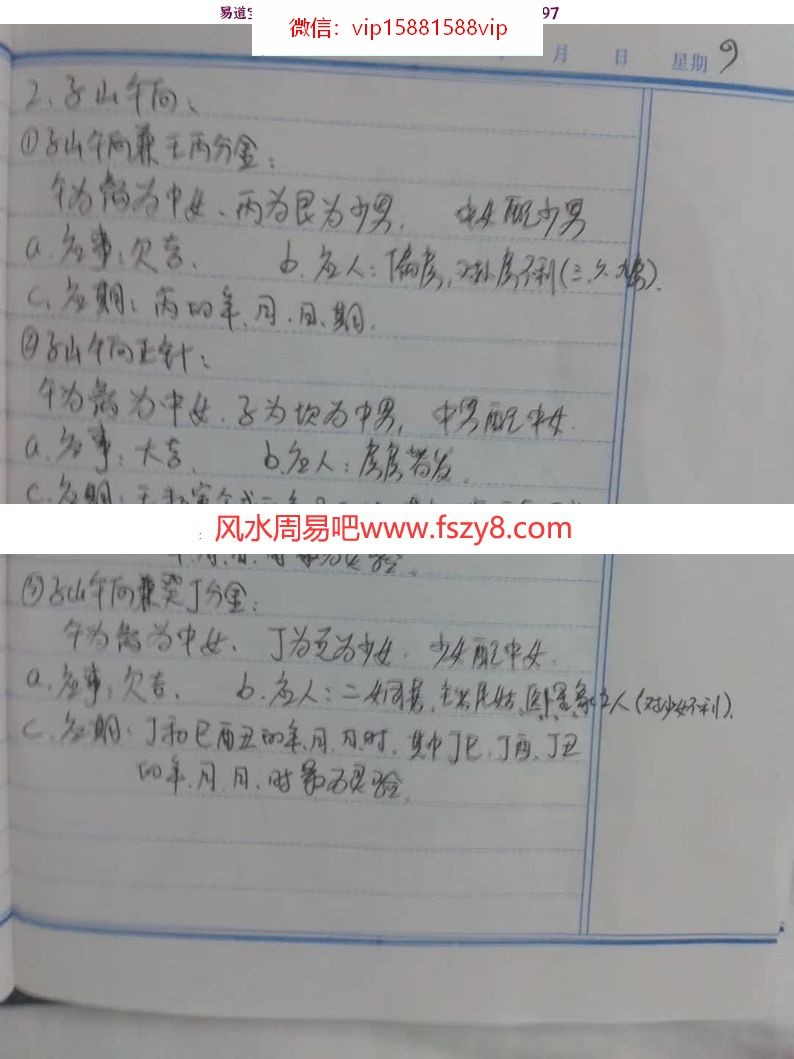 易道
97
微信：vip15881588vip
月 日 星期 9
2、子山午向、
①子山午向兼壬丙分金：
午为离为中女、丙为艮为少男， 中女配少男
a、应事：欠吉、 b、应人：偏房，对 房不利（三、六、九房）、
c、应期：丙的年、月、日、期、
②子山午向正针：
午为离为中女、子为坎为中男， 中男配中女
a、应事：大吉、 b、应人：房房皆发。
c、应期：壬
风水周易吧www.fszy8.com
③子山午向兼癸丁分金：
午为离为中女、丁为兑为少女、少女配中女、
a、应事：欠吉、 b、应人：二女同居， 人（对少女不利）、
c、应期：丁和巳酉丑的年、月、日、时，其中丁巳、丁酉、丁丑
的年、月、日、时最为灵验。